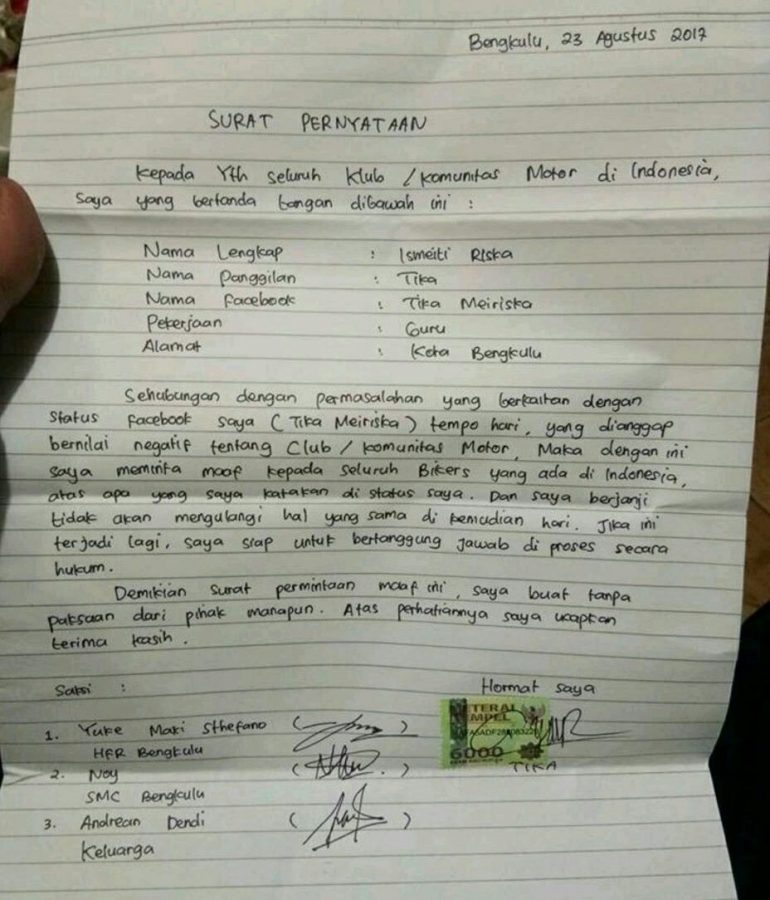 Bengkulu, 23 Agustus 2017
SURAT PERNYATAAN
Kepada Yth seluruh Klub / Komunitas Motor di Indonesia,
Saya yang bertanda tangan dibawah ini :
Nama Lengkap : Ismeiti Riska
Nama Panggilan : Tika
Nama Facebook : Tika Meiriska
Pekerjaan : Guru
Alamat : Kota Bengkulu
Sehubungan dengan permasalahan yang berkaitan dengan
status Facebook saya (Tika Meiriska) tempo hari, yang dianggap
bernilai negatif tentang Club / Komunitas Motor. Maka dengan ini
saya meminta maaf kepada seluruh Bikers yang ada di Indonesia,
atas apa yang saya katakan di status saya. Dan saya berjanji
tidak akan mengulangi hal yang sama di kemudian hari. Jika ini
terjadi lagi, saya siap untuk bertanggung jawab di proses secara
hukum.
Demikian surat permintaan maaf ini, saya buat tanpa
paksaan dari pihak manapun. Atas perhatiannya saya ucapkan
terima kasih.
Saksi :
Hormat saya
1. Yuke Maki Sthefano ( )
HFR Bengkulu
2. Noy ( )
SMC Bengkulu
3. Andrean Dendi ( )
Keluarga
METERAI
TEMPEL
6000
TIKA